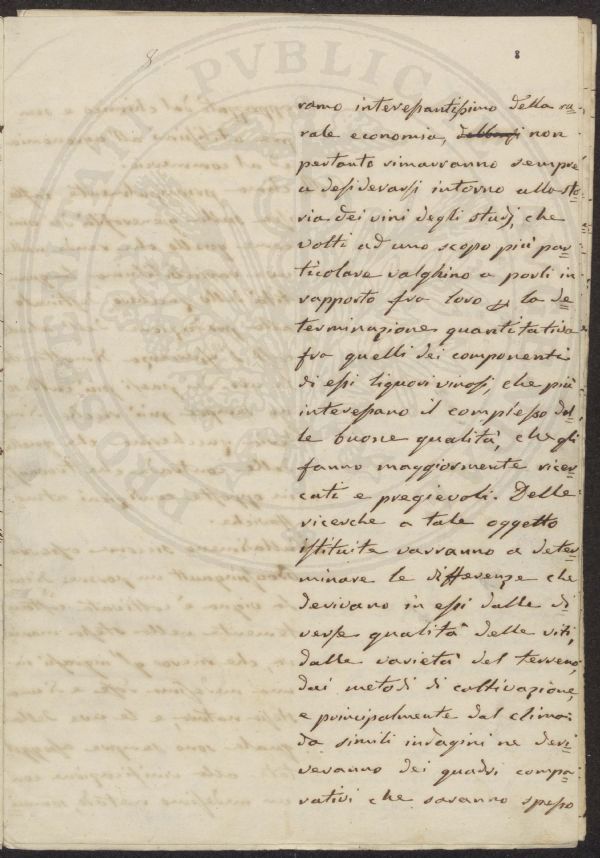 8
8
ramo interessantissimo della ru-
rale economia, non
pertanto rimarranno sempre
a desiderarsi intorno alla sto-
ria dei vini degli studj, che
volti ad uno scopo più par-
ticolare valghino a porli in
rapporto fra loro la de-
terminazione quantitativa
fra quelli dei componenti
di essi liquori vinosi, che più
interessano il complesso del-
le buone qualità, che gli
fanno maggiormente ricer-
cati e pregievoli. Delle
ricerche a tale oggetto
istituite varranno a deter-
minare le differenze che
derivano in essi dalle di-
verse qualità delle viti,
dalle varietà del terreno,
dai metodi di coltivazione,
e principalmente dal clima:
da simili indagini ne deri-
veranno dei quadri compa-
rativi che saranno spesso
PVBLIC